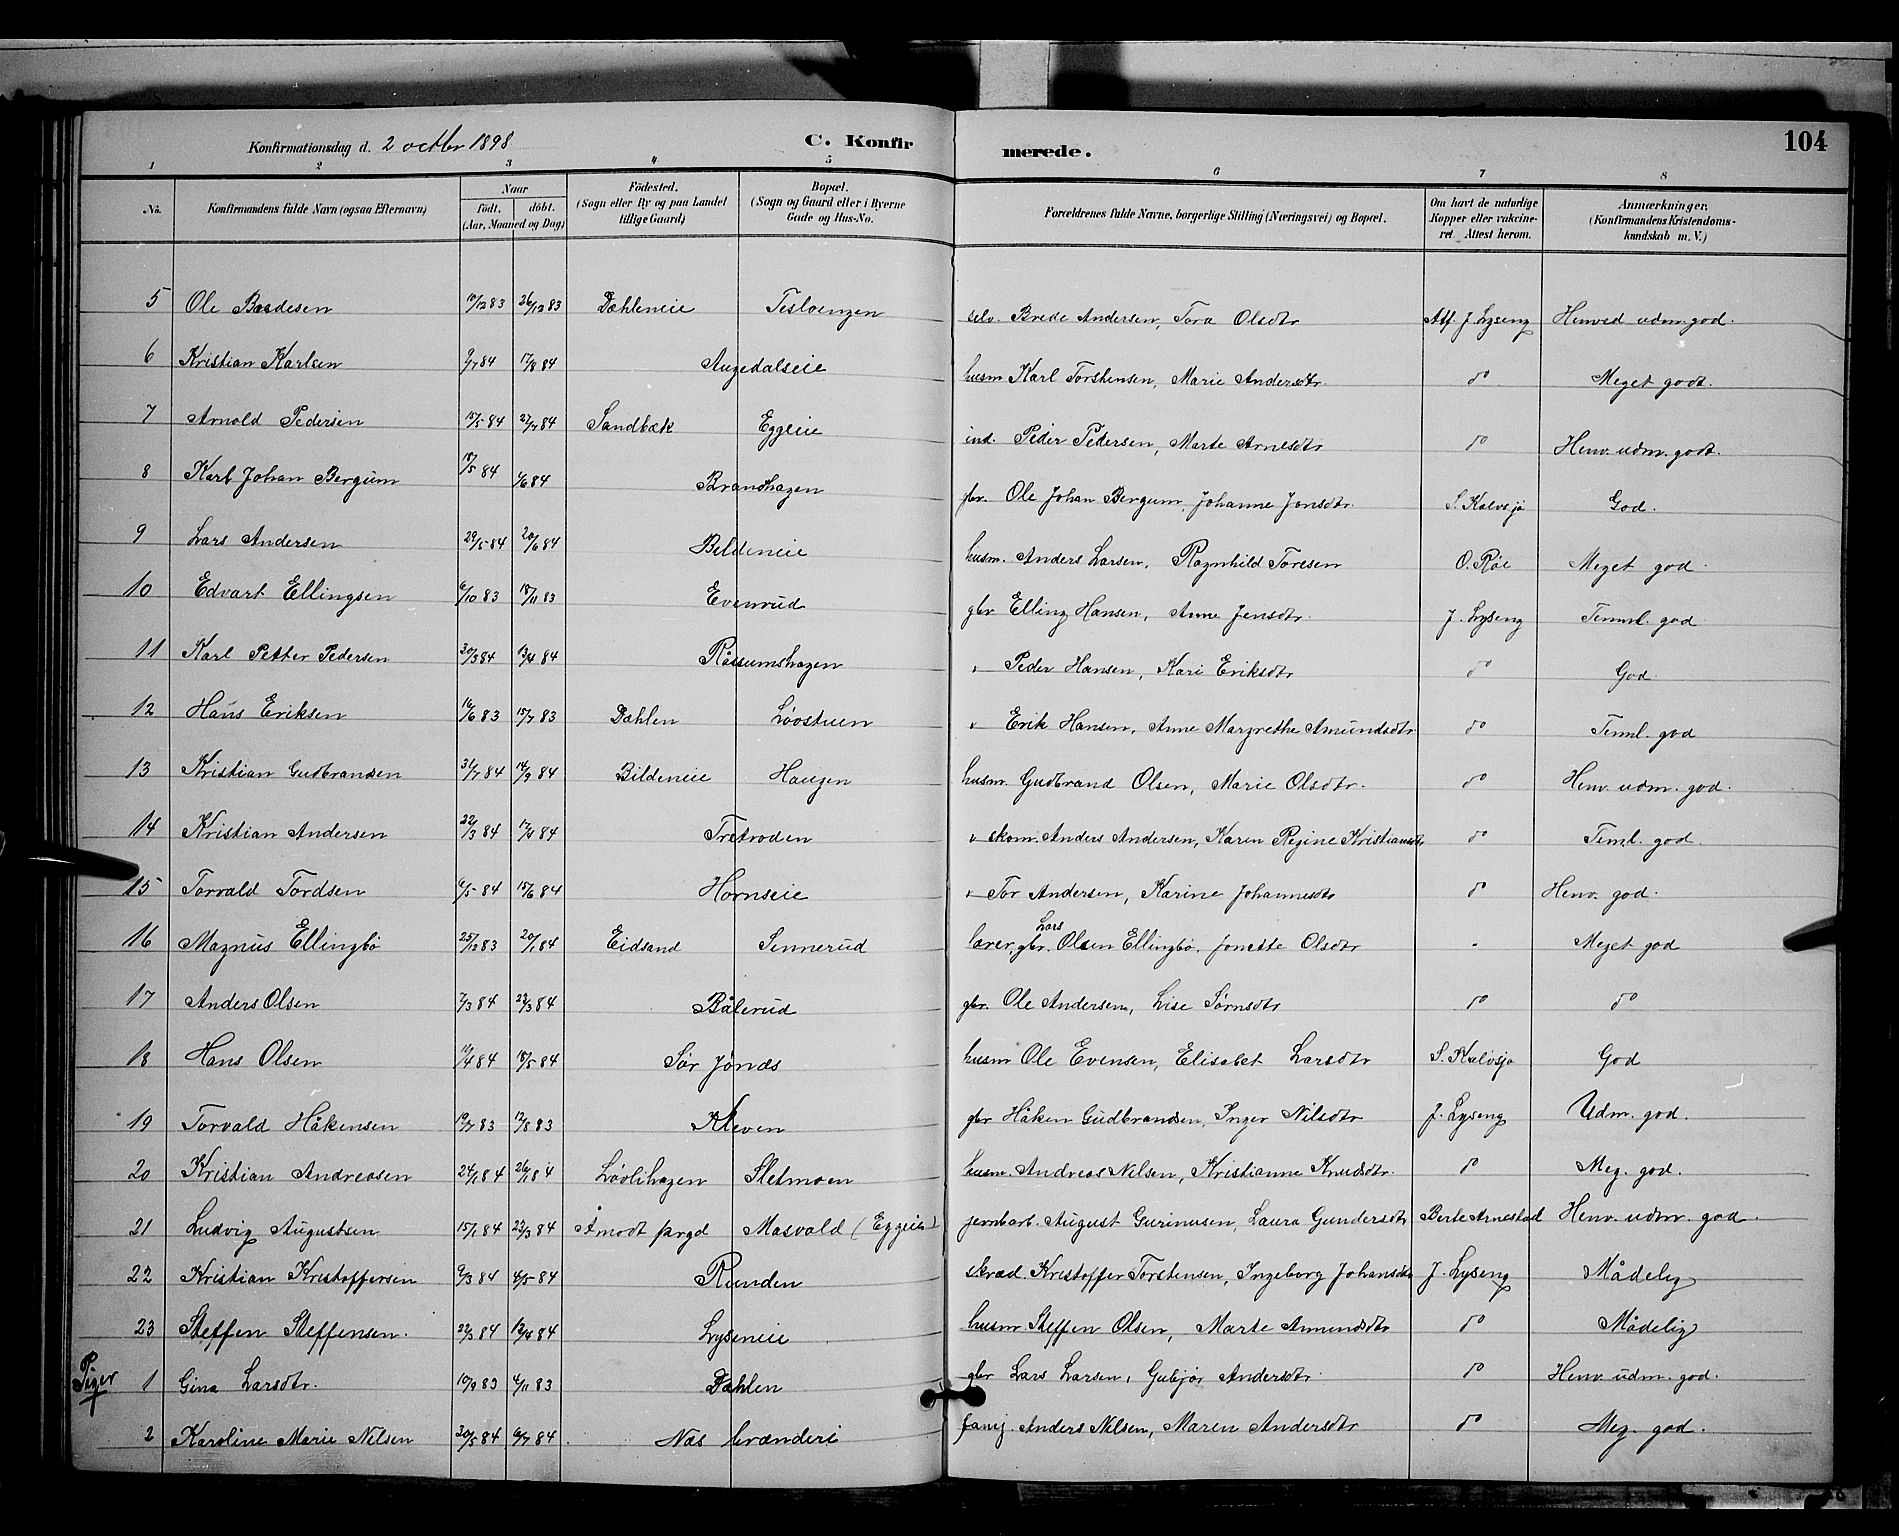 104
Konfirmationsdag d. 2 octbr 1898 C. Konfirmerede.
1 2 3 4 5 6 7 8
No. Konfirmandens fulde Navn (ogsaa Efternavn) Naar födt. döbt. (Aar, Maaned og Dag) Födested. (Sogn eller By og paa Landet tillige Gaard) Bopæl. (Sogn og Gaard eller i Byerne Gade og Hus-No. Forældrenes fulde Navne, borgerlige Stilling (Næringsvei) og Bopæl. Om havt de naturlige Kopper eller vakcineret. Attest herom. Anmærkninger. (Konfirmandens Kristendomskundskab m. V.)
5 Ole Bredesen 10/12 83 26/12 83 Dæhleneie Tesloengen selv. Brede Andersen, Tora Olsdtr Att. J. Lyseng Henved udm. god.
6 Kristian Karlsen 9/7 84 17/8 84 Augedalseie husm Karl Torstensen, Marie Andersdtr do Meget godt.
7 Arnold Pedersen 15/5 84 27/7 84 Sandbæk Eggeie ind. Peder Pedersen, Marte Arnesdtr do Henv. udm. godt.
8 Karl Johan Bergum 18/5 84 1/6 84 Brandhagen gbr. Ole Johan Bergum, Johanne Jonsdtr. S. Kalvsjø God.
9 Lars Andersen 29/5 84 20/6 84 Bildeneie husm. Anders Larsen, Ragnhild Toresen O. Røe Meget god
10 Edvart Ellingsen 6/10 83 18/11 83 Evenrud gbr Elling Hansen, Anne Jensdtr. J. Lyseng Temml. god
11 Karl Petter Pedersen 30/3 84 13/4 84 Råssumshagen " Peder Hansen, Kari Eriksdtr do God
12 Hans Eriksen 16/6 83 15/7 83 Dæhlen Løostuen " Erik Hansen, Anne Margrethe Amundsdtr do Teml. god
13 Kristian Gudbrandsen 31/7 84 14/9 84 Bildeneie Haugen husm. Gudbrand Olsen, Marie Olsdtr. do Henv. udm. god.
14 Kristian Andersen 22/3 84 17/4 84 Tretroden " skom. Anders Andersen, Karen Regine Kristiansdtr do Teml. god.
15 Torvald Tordsen 6/5 84 15/6 84 Hornseie " Tor Andersen, Karine Johannesdtr do Henv. god.
16 Magnus Ellingbø 25/10 83 20/1 84 Eidsand Sinnerud lærer, gbr. Lars Olsen Ellingbø, Jonette Olsdtr - Meget god
17 Anders Olsen 7/3 84 23/3 84 Bålerud gbr. Ole Andersen, Lise Sørnsdtr do do
18 Hans Olsen 11/4 84 18/5 84 Sør Jønds husm Ole Evensen, Elisabet Larsdtr S. Kalvsjø God
19 Torvald Håkensen 19/7 83 12/8 83 Kleven gbr Håken Gudbrandsen, Inger Nilsdtr J. Lyseng Udm. god.
20 Kristian Andreasen 24/1 84 26/1 84 Løvlihagen Sletmoen husm. Andreas Nilsen, Kristianne Knudsdtr. do Meg. god.
21 Ludvig Augustsen 15/1 84 23/3 84 Åmodt prgd Masvald (Eggeie) jernbarb. August Gurinusen, Laura Gundersdtr Berte Arnestad Henv. udm. god.
22 Kristian Kristoffersen 9/3 84 4/5 84 Runden skræd. Kristoffer Torstensen, Ingeborg Johansdtr J. Lyseng Mådelig
23 Steffen Steffensen. 22/3 84 12/4 84 Lyseneie husm Steffen Olsen, Marte Amundsdtr do Mådelig
Piger
1 Gina Larsdtr. 10/9 83 4/11 83 Dæhlen gbr Lars Larsen, Gubjør Andersdtr. do Henv. udm. god.
2 Karoline Marie Nilsen 20/5 84 6/7 84 Næs brænderi Anders Nilsen, Maren Andersdtr do Meg. god.